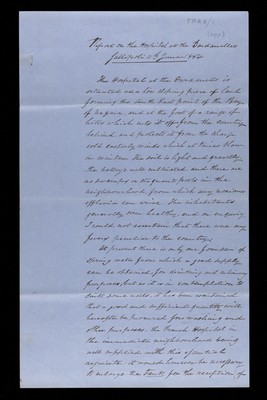 Report on the Hospital at the Dardanelles
Gallipoli 11th June 1854
The Hospital at the Dardanelles is
situated on a low sloping piece of land
forming the South East point of the Bay
of and at the foot of a range of
hills which cuts it off from the country
behind and protects it from the sharp
cold easterly winds which at times blow
in winter. The soil is light and gravelly,
the valleys well cultivated, and there are
no swamps or stagnant pools in the
neighbourhood from which any noxious
effluvia can arise. The inhabitants
generally are healthy, and on enquiry
I could not ascertain that there was any
fever peculiar to the country.
At present there is only one fountain of
Spring water from which a good supply
can be obtained for drinking and culinary
purposes, but as it is in contemplation to
sink some wells, it has been ascertained
that a good and sufficient quantity will
hereafter be procured for washing and
other purposes. the French Hospital in
the immediate neighbourhood being
well supplied with this essential
requisite. it would however be necessary
to enlarge the Tanks for the reception of